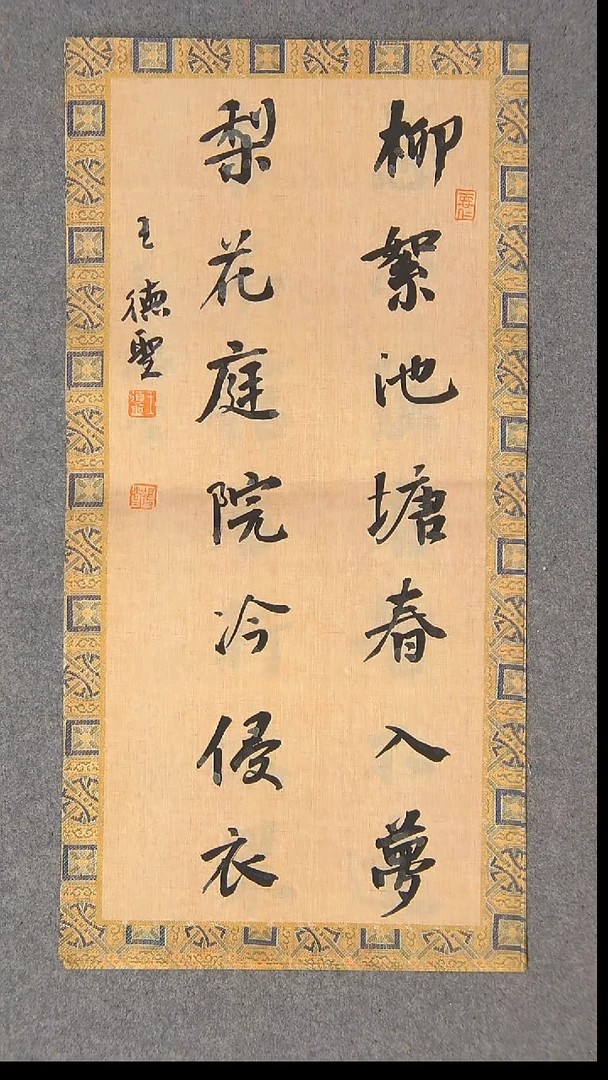 柳絮池塘春入夢
梨花庭院冷侵衣
王德聖